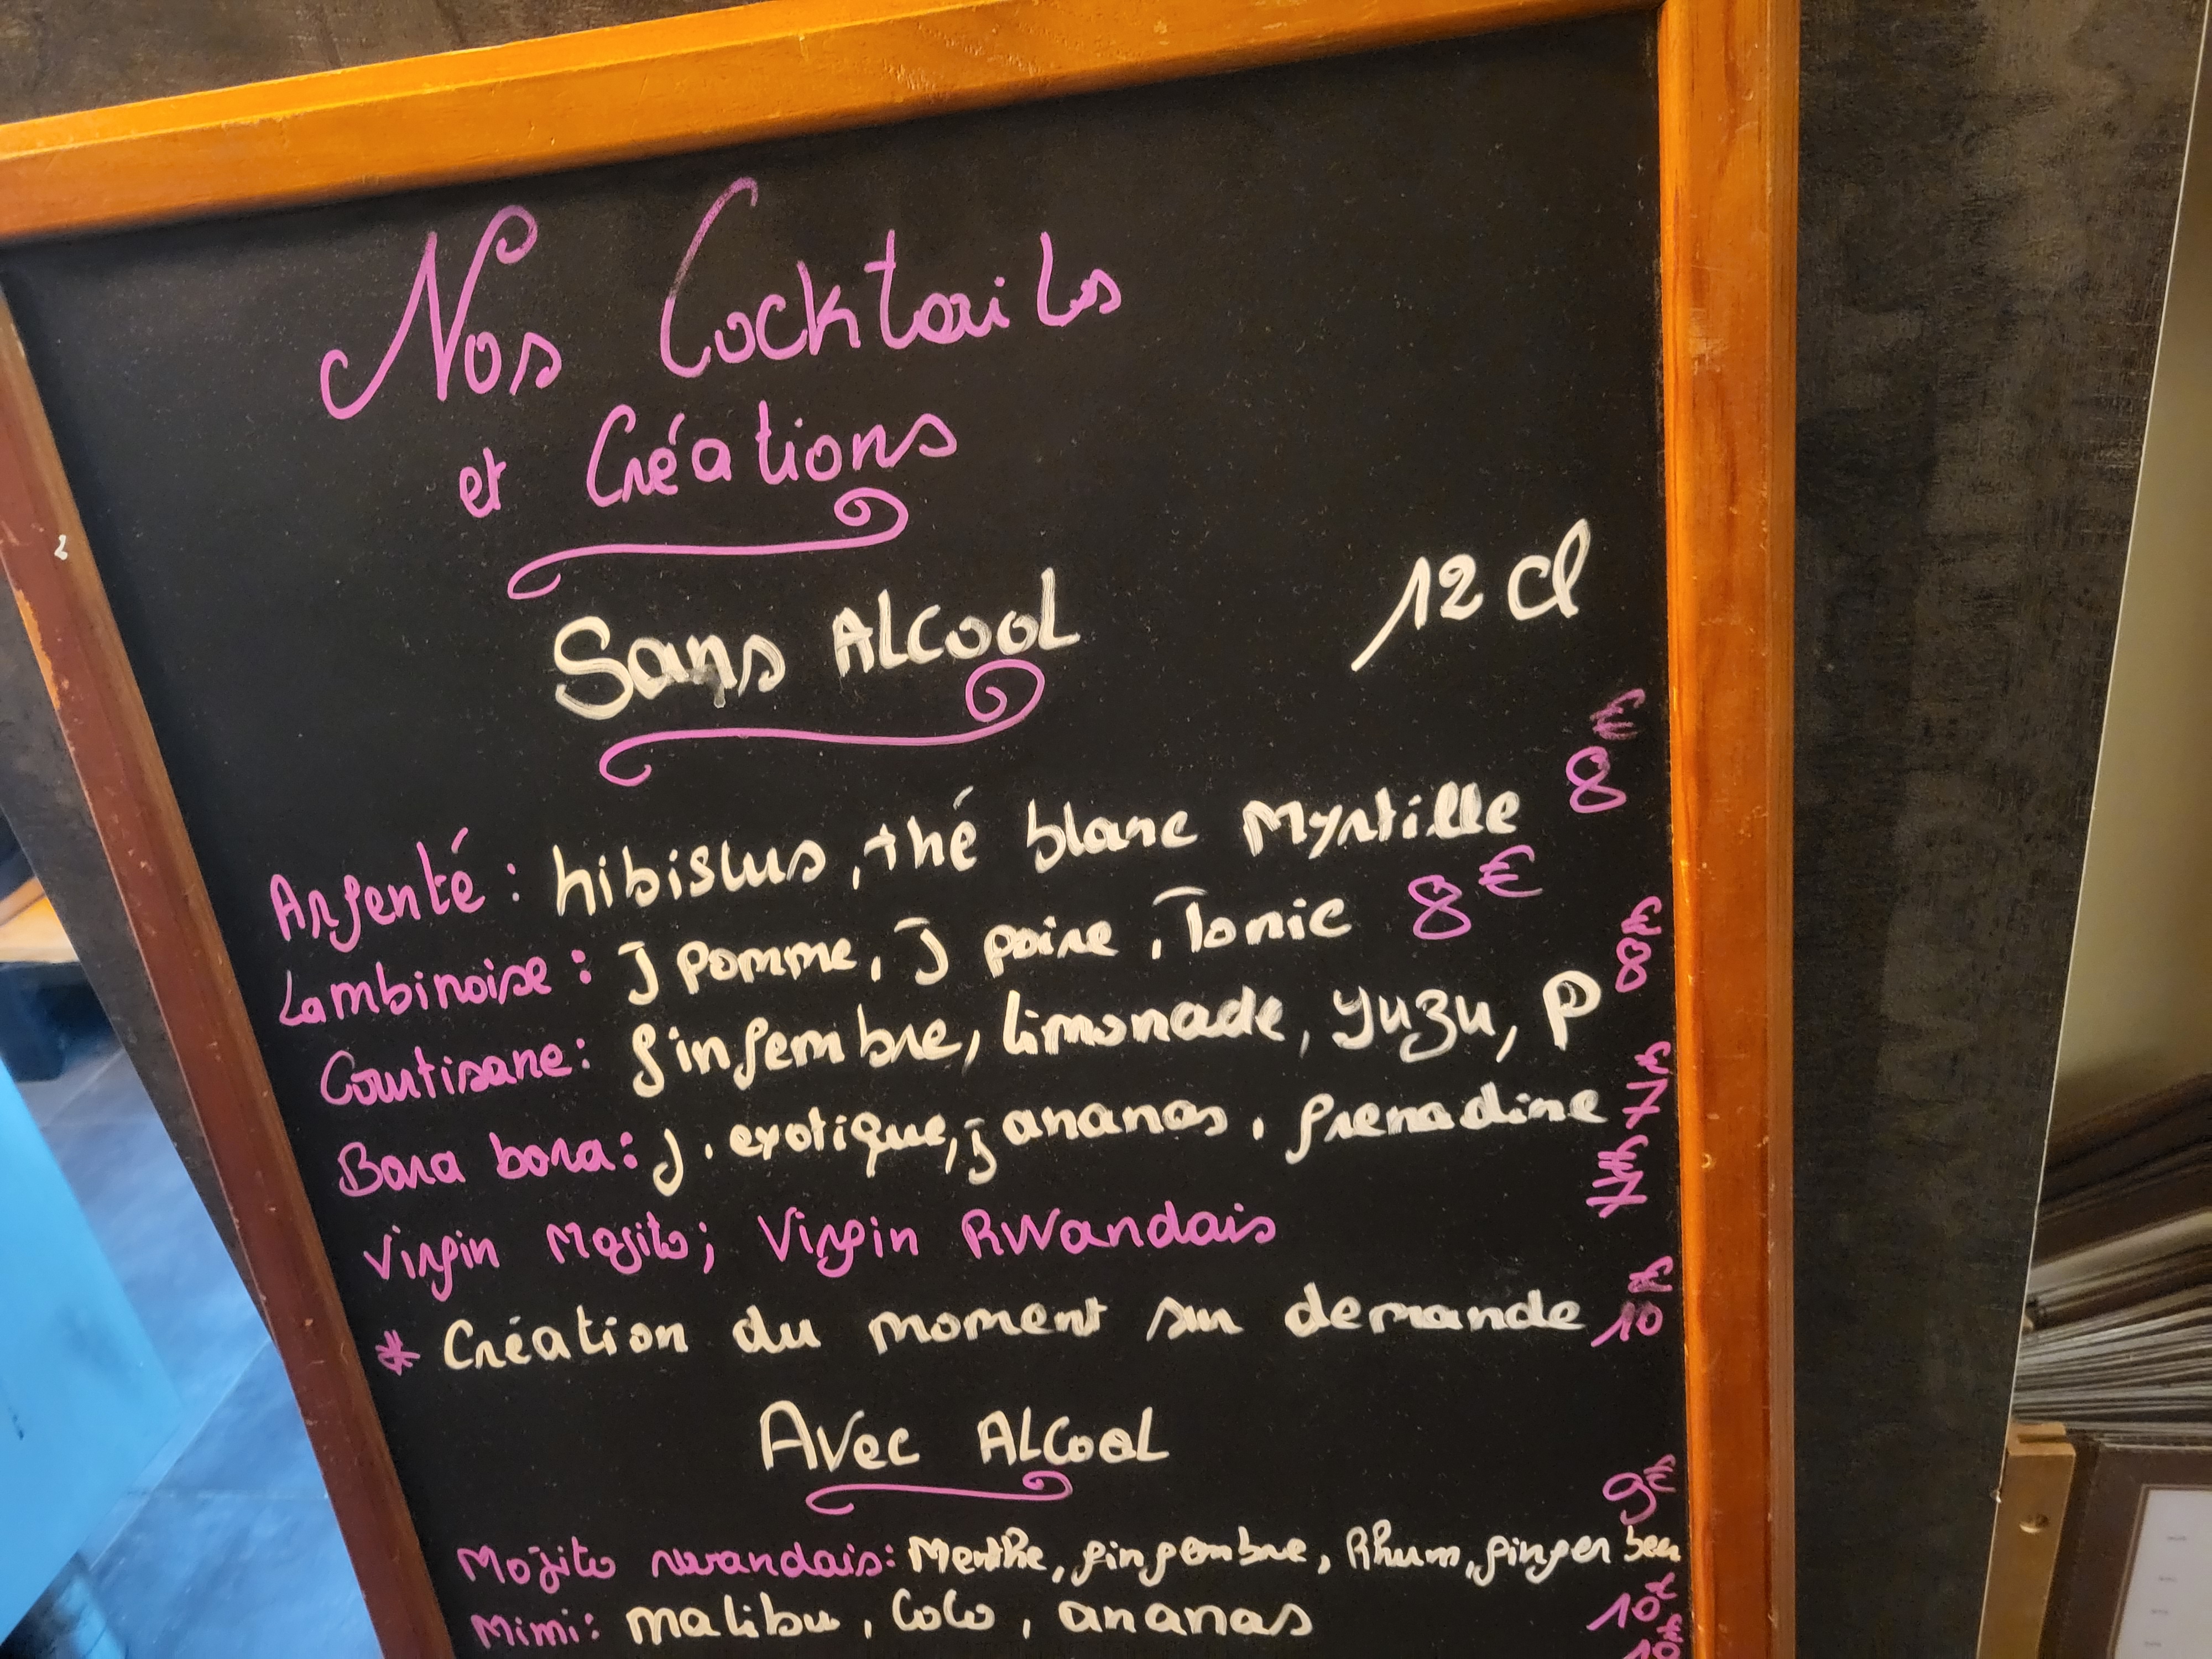 Nos Cocktails
et Créations
Sans ALCOOL 12 cl
Argenté : hibiscus, thé blanc Myrtille 8€
Lambinoise : J pomme, J poire, Tonic 8€
Courtisane : gingembre, limonade, yuzu, P 8€
Bora bora : J. exotique, j ananas, grenadine 7€
Virgin Mojito; Virgin RWandais 7€
* Création du moment sur demande 10€
Avec ALCOOL
Mojito rwandais : Menthe, gingembre, Rhum, ginger beer 9€
Mimi : malibu, Coco, ananas 10€
10€